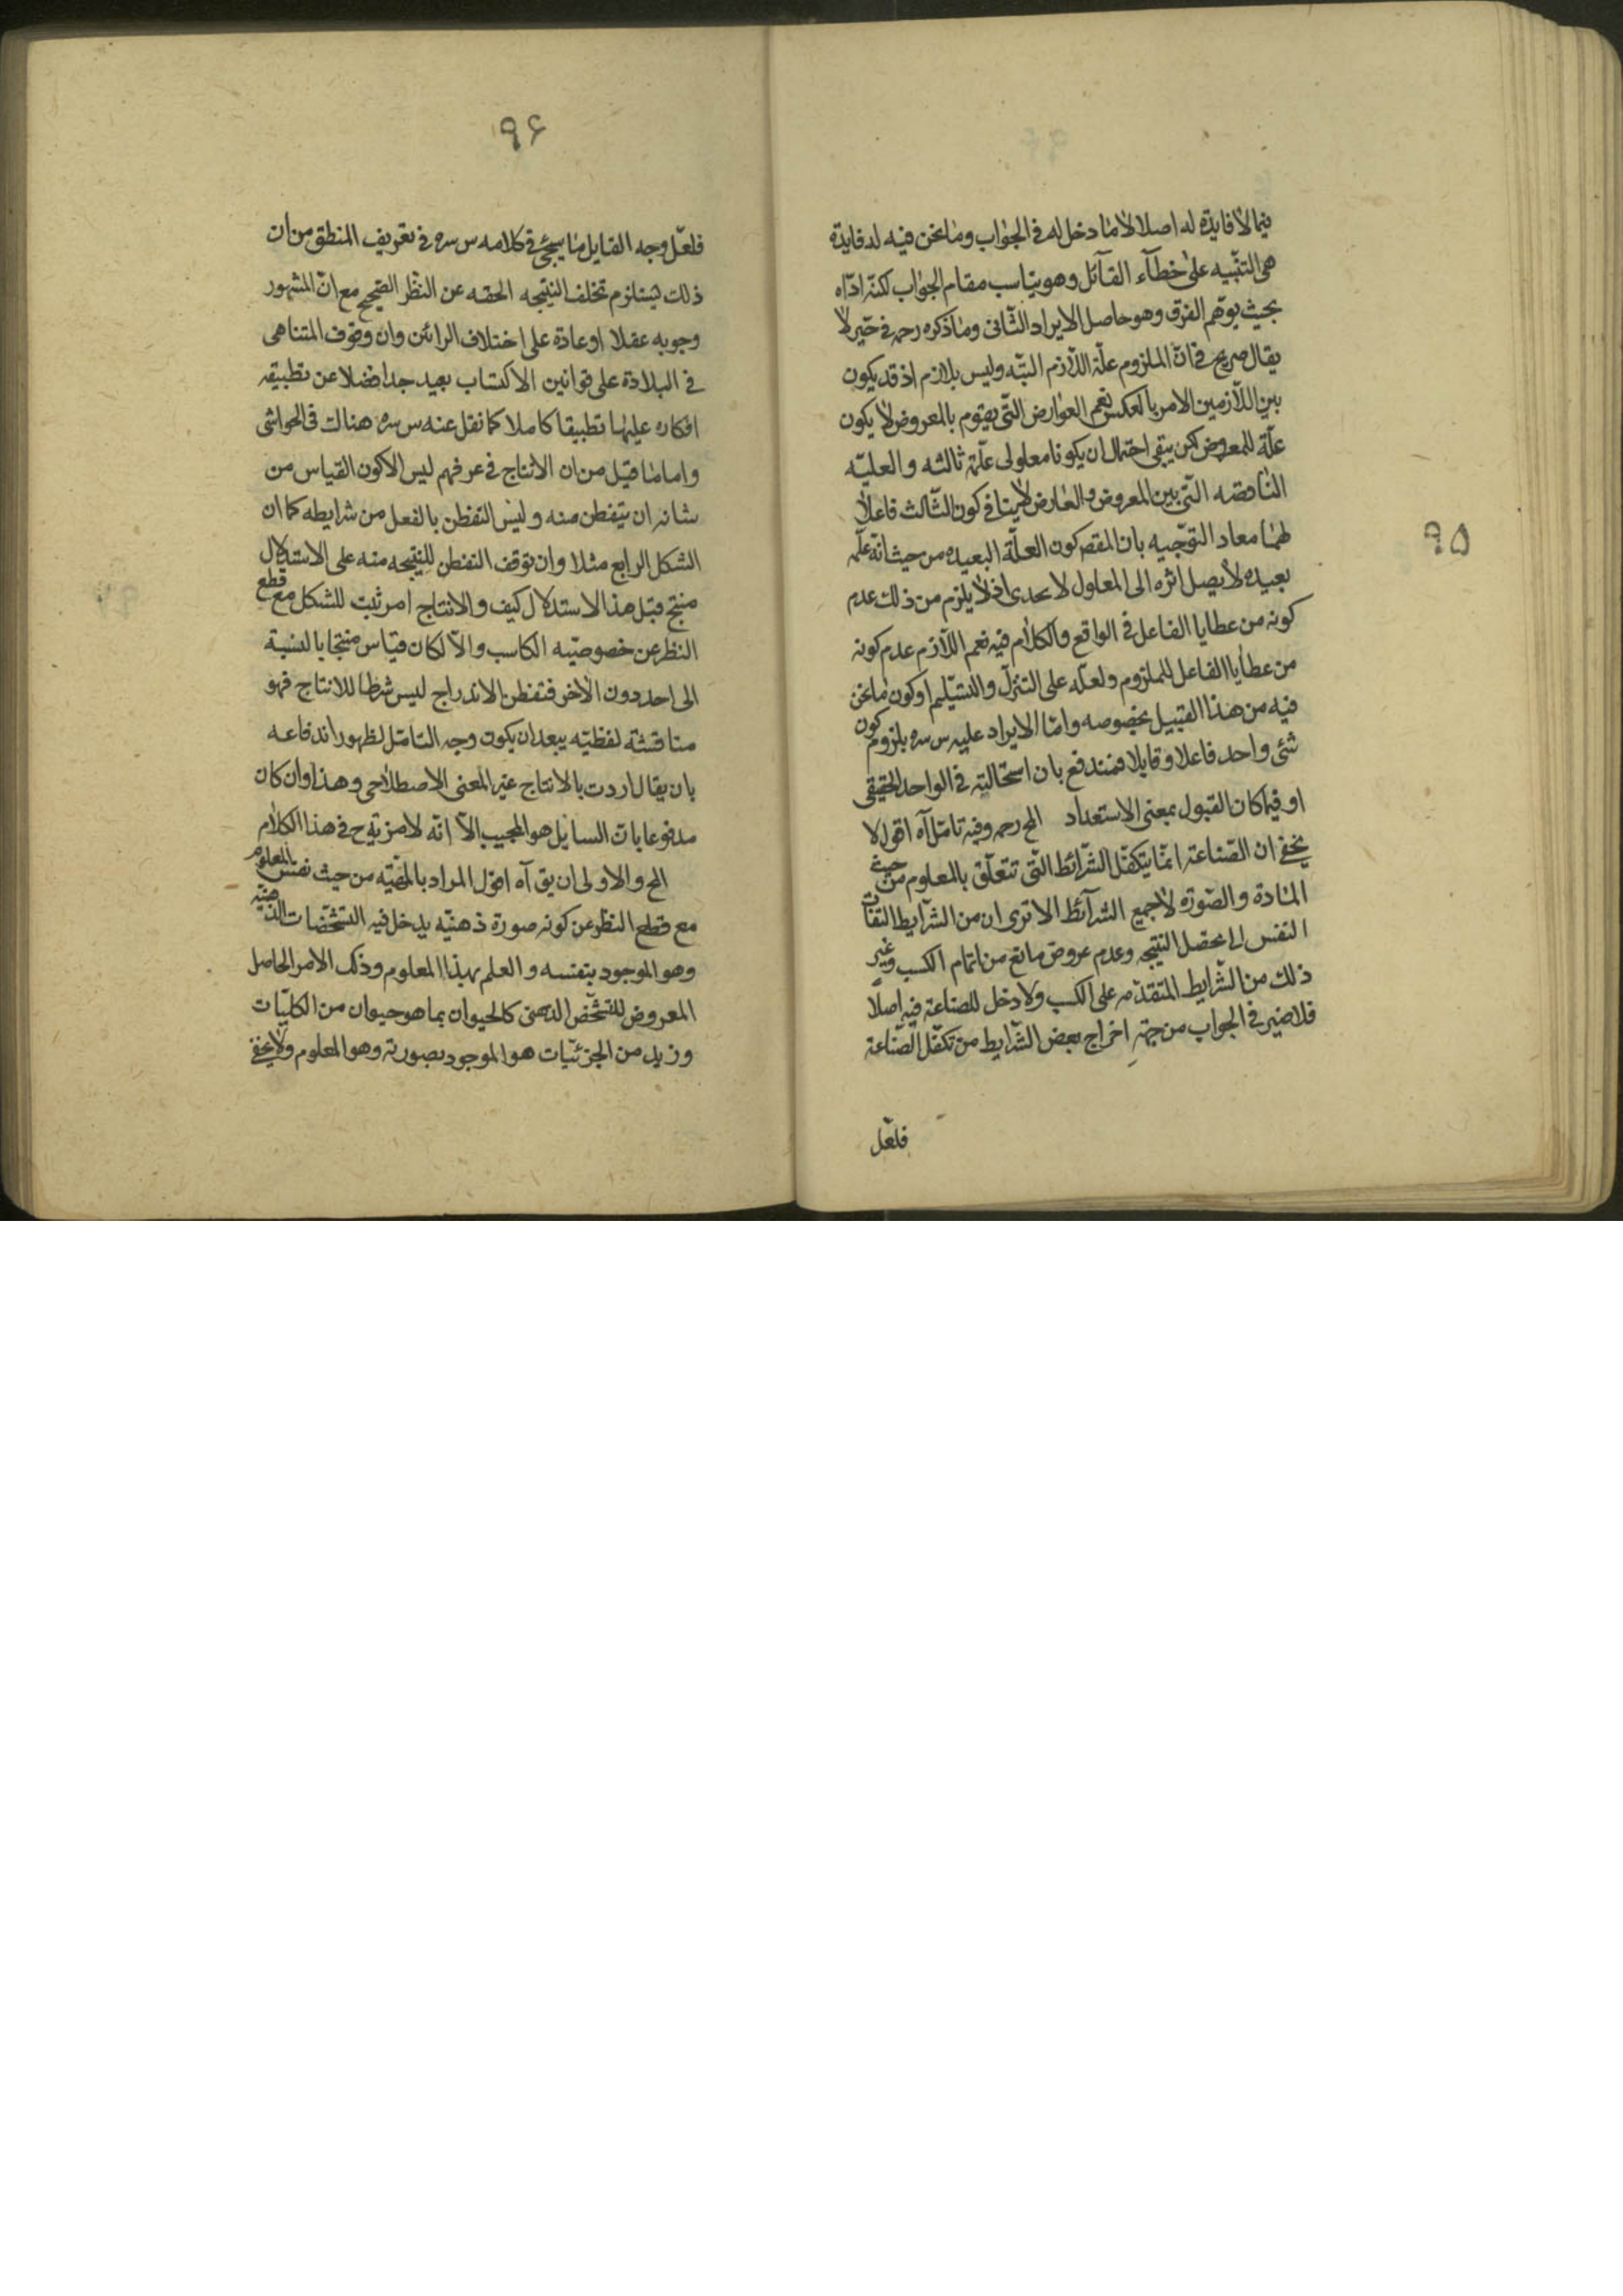 ٩٥
فيما لا فايدة له اصلا لا ما دخل له في الجواب وما نحن فيه له فايدة
هى التنبيه على خطآء القآئل وهو يناسب مقام الجواب لكنّه ادّاه
بحيث يوهم الفرق وهو حاصل الايراد الثّانى وما ذكره رحمه في حيّز لا
يقال صريح في انّ الملزوم علّة اللّازم البتّه وليس بلازم اذ قد يكون
بين اللّازمين الامر بالعكس نعم العوارض التّى يقوم بالمعروض لا يكون
علّة للمعروض لكن يبقى احتمال ان يكونا معلولى علّة ثالثه والعليّه
النّاقصه التّى بين المعروض والعارض لا ينافي كون الثّالث فاعلا
لهما معاد التّوجيه بان المقصر كون العلّة البعيده من حيث انّه علّه
بعيده لا يصل اثره الى المعلول لا يجدى اذ لا يلزم من ذلك عدم
كونه من عطايا الفاعل في الواقع والكلام فيه نعم اللّازم عدم كونه
من عطايا الفاعل للملزوم ولعلّه على التنزّل والتسليم او كون ما نحن
فيه من هذا القبيل بخصوصه وامّا الايراد عليه س سره بلزوم كون
شئ واحد فاعلا وقابلا فمندفع بان استحالته في الواحد الحقيقى
او فيما كان القبول بمعنى الاستعداد المح رحمه وفيه تامّل آه اقول لا
يخفى ان الصّناعة انمّا يتكفّل الشّرائط التّى تتعلّق بالمعلوم من حيث
المادة والصّورة لا جميع الشرآئط الا ترى ان من الشرايط التفات
النفس الى محصّل النتيجه وعدم عروض مانع من اتمام الكسب وغير
ذلك من الشّرايط المتقدّمه على الكسب ولا دخل للصناعة فيه اصلًا
فلا ضير في الجواب من جهةِ اخراج بعض الشّرايط من تكفّل الصّناعة
فلعّل
٩۶
فلعّل وجه القايل ما سيجئ في كلامه س سره في تعريف المنطق من ان
ذلك يستلزم تخلف النتيجه الحقه عن النّظر الصّحيح مع انّ المشهور
وجوبه عقلا او عادة على اختلاف الرائين وان وقوف المتناهى
في البلادة على قوانين الاكتساب بعيد جدا فضلا عن تطبيقه
افكاره عليها تطبيقا كاملا كما نقل عنه س سره هنالك في الحواشى
واما ما قيل من ان الانتاج في عرفهم ليس الا كون القياس من
شانه ان يتفطن منه وليس التفطن بالفعل من شرايطه كما ان
الشكل الرابع مثلا وان توقف التفطن للنتيجه منه على الاستدلال
منتج قبل هذا الاستدلال كيف والانتاج امر ثبت للشكل مع قطع
النظر عن خصوصيّه الكاسب والّا لكان قياس منتجا بالنسبة
الى احد دون الاخر فتفطن الاندراج ليس شرطا للانتاج فهو
مناقشة لفظيّه يبعد ان يكون وجه التامّل لظهور اندفاعه
بان يقال اردت بالانتاج غير المعنى الاصطلاحى وهذا وان كان
مدفوعا بان السايل هو المجيب الّا انّه لا مزيّة ح في هذا الكلام
المح والاولى ان يق آه اقول المراد بالمهيّه من حيث نفس المعلوم
مع قطع النظر عن كونه صورة ذهنيّه يدخل فيه التشخّصات الذهنيّه
وهو الموجود بنفسه والعلم بهذا المعلوم وذلك الامر الحاصل
المعروض للتشخّص الذهنى كالحيوان بما هو حيوان من الكليّات
وزيد من الجزئيّات هو الموجود بصورته وهو المعلوم ولا يخفى